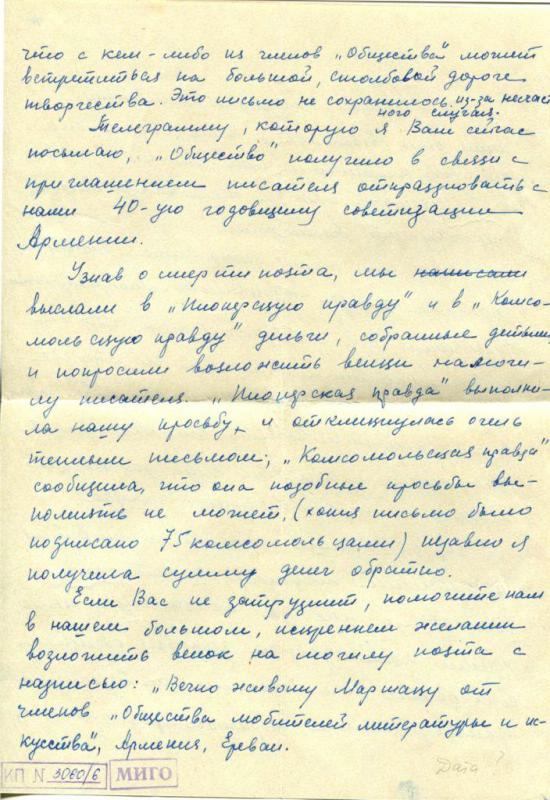 что с кем-либо из членов „Общества" может
встретиться на большой, столбовой дороге
творчества. Это письмо не сохранилось из-за несчаст
ного случая.
Телеграмму, которую я Вам сейчас
посылаю, „Общество" получило в связи с
приглашением писателя отпраздновать с
нами 40-ую годовщину советизации
Армении.
Узнав о смерти поэта, мы написали
выслали в „Пионерскую правду" и в „Комсо-
мольскую правду" деньги, собранные детьми,
и попросили возложить венки на моги-
лу писателя. „Пионерская правда" выполни-
ла нашу просьбу, и откликнулась очень
теплым письмом; „Комсомольская правда"
сообщила, что она подобные просьбы вы-
полнять не может, (хотя письмо было
подписано 75 комсомольцами) недавно я
получила сумму денег обратно.
Если Вас не затруднит, помогите нам
в нашем большом, искреннем желании
возложить венок на могилу поэта с
надписью: „Вечно живому Маршаку от
членов „Общества любителей литературы и ис-
кусства", Армения, Ереван.
КП N 3060/6 МИГО
Дата ?